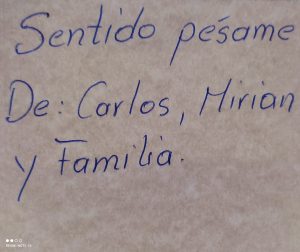 Sentido pésame
De: Carlos, Mirian
y Familia.